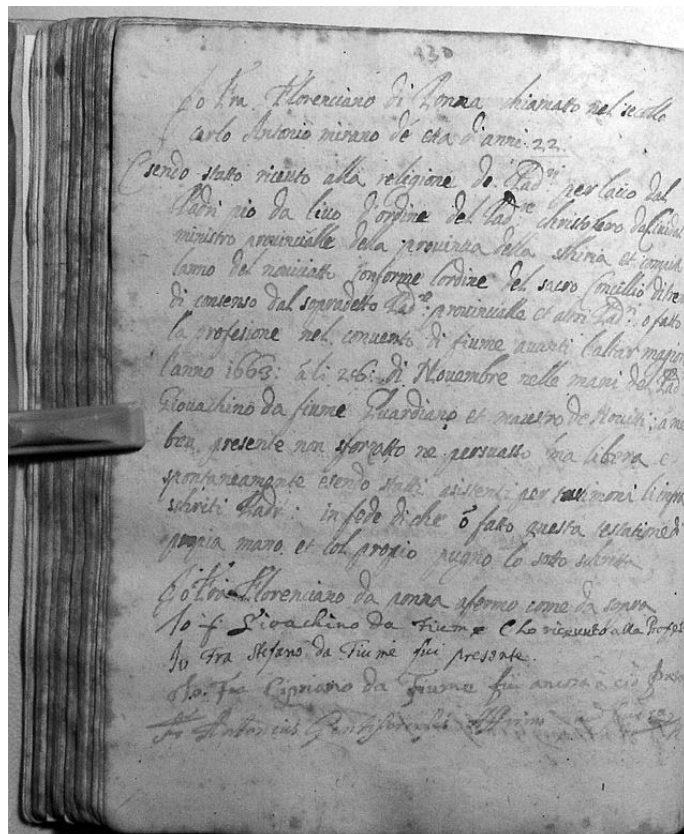 430
Io Fra Florenciano di Ponna chiamatto nel secollo
carlo Antonio mirano de eta d'anni 22
Esendo statto riceuto alla religione de Pad.ri per laico dal
Padri pio da liuo d'ordine del Pad.re christoforo da Cividal
ministro provincialle della provincia della sthiria et compia
lanno del noviciatto conforme l'ordine del sacro Concillio di tren
di consenso dal sopradetto Pad.re provincialle et altri Pad.ri o fatto
la profesione nel convento di fiume avanti l'altar magior
l'anno 1663: ali 26: di Novembre nelle mani del Pad
Giovachino da fiume Guardiano et maestro de Noviti: a me
ben presente non sforzatto ne persuatto ma libera e
spontaneamente esendo statti asistenti per testimoni l'infra
schriti Padri: in fede di che o fatto questa testatione di
propia mano et col propio pugno lo sotto schritta
Io Fra Florenciano da ponna afermo come da sopra
Io f. Giovachino da Fiume l'ho ricevuto alla Profes
Io Fra Stefano da Fiume fui presente.
Io Fra Cipriano da Fiume fui ancora a ciò Prese
Fr Antonius affirmo